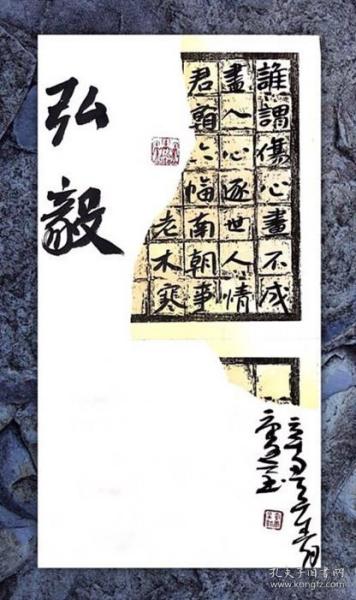 弘毅
誰謂傷心畫不成
畫人心逐世人情
君看六幅南朝事
老木寒
孔夫子旧书网
www.kongfz.com